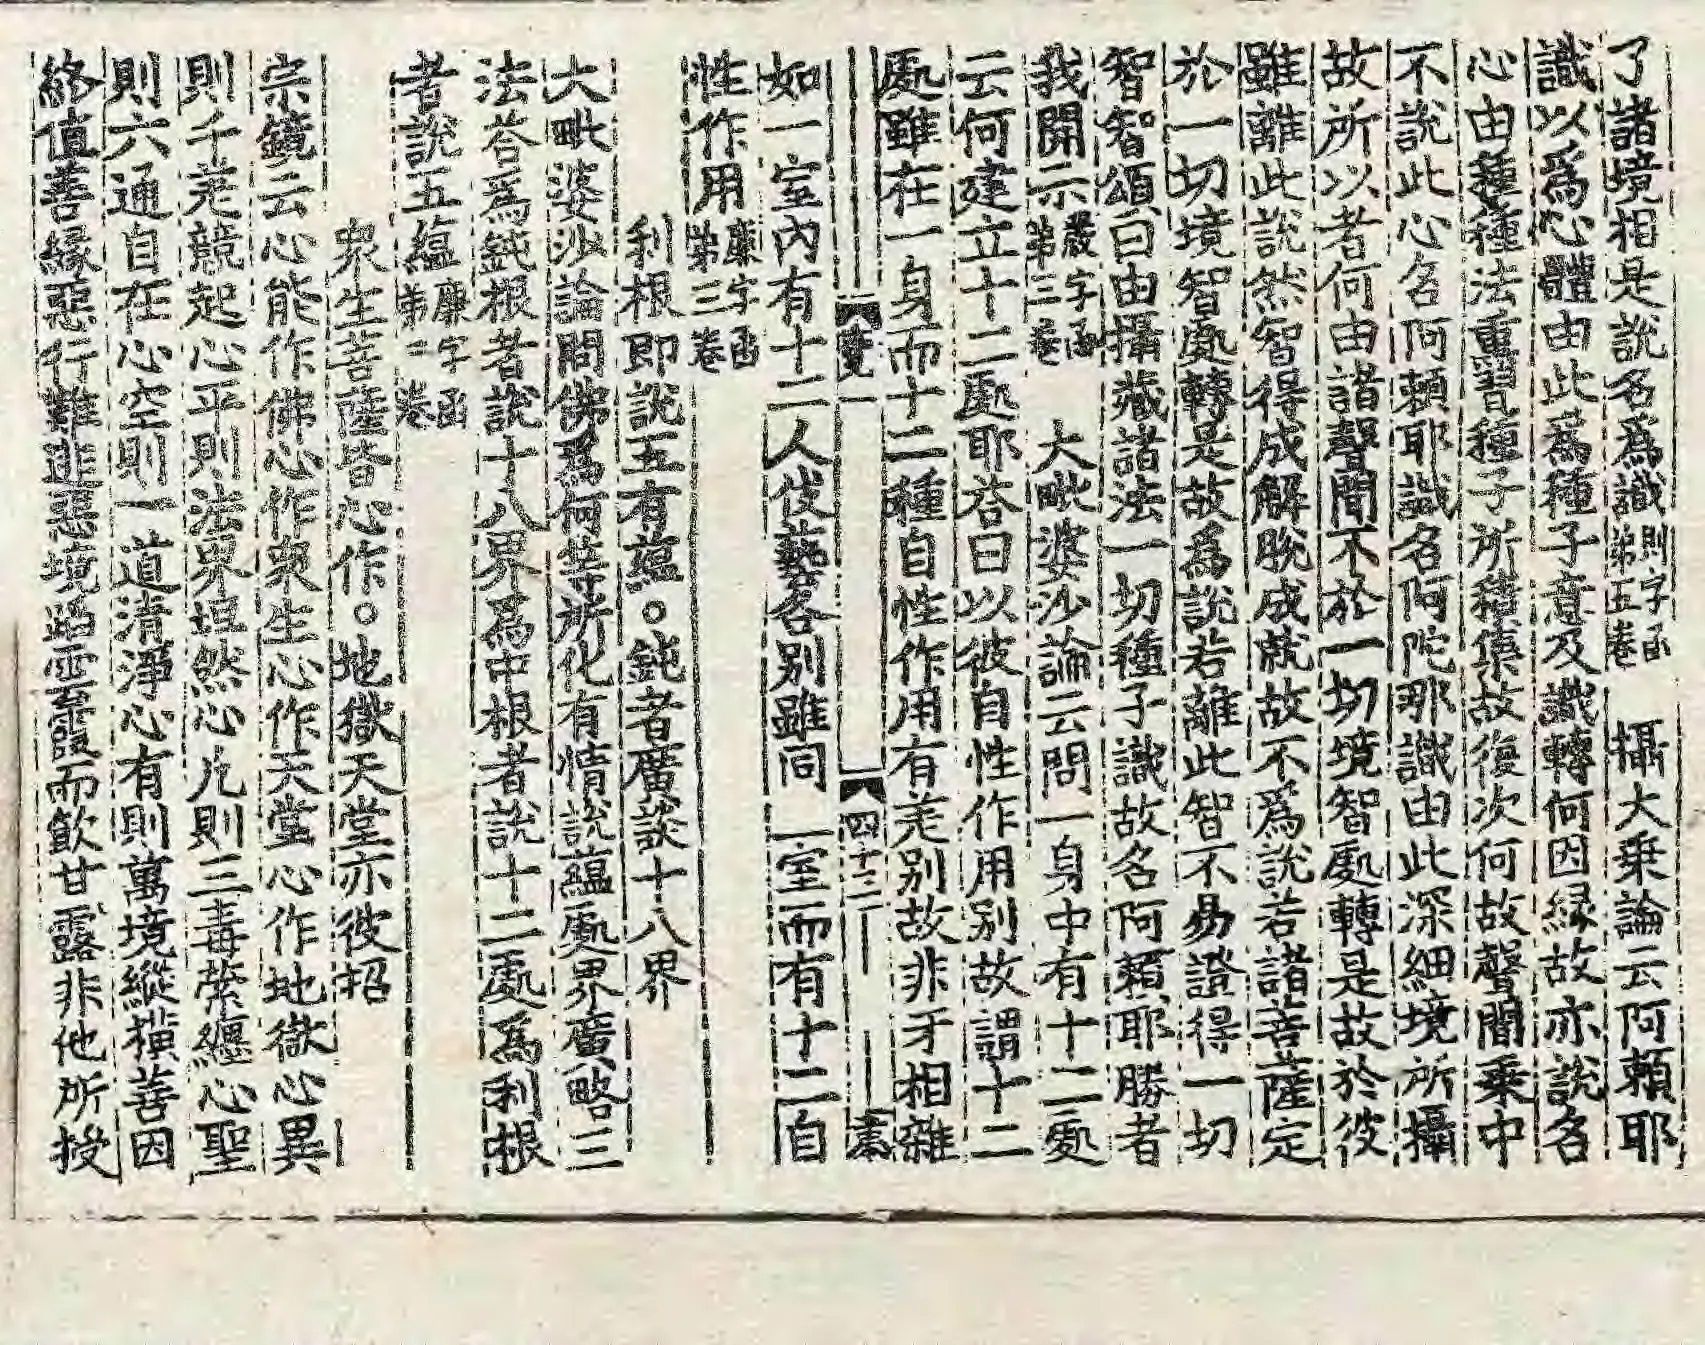 了諸境相是說名爲識則字函第五卷　攝大乗論云阿賴耶
識以爲心體由此爲種子意及識轉何因縁故亦說名
心由種種法熏習種子所積集故復次何故聲聞乗中
不說此心名阿賴耶識名阿陀那識由此深細境所攝
故所以者何由諸聲聞不於一切境智處轉是故於彼
雖離此說然智得成解脫成就故不爲說若諸菩薩定
於一切境智處轉是故爲說若離此智不易證得一切
智智頌曰由攝藏諸法一切種子識故名阿賴耶勝者
我開示叢字函第三卷　大毗婆沙論云問一身中有十二處
云何建立十二處耶荅曰以彼自性作用別故謂十二
處雖在一身而十二種自性作用有差別故非牙相雜
覽　四十三
如一室內有十二人伎藝各別雖同一室而有十二自
性作用廉字函第三卷
利根即說五有蘊。鈍者廣談十八界
大毗婆沙論問佛爲何等所化有情說蘊處界廣略三
法荅爲鈍根者說十八界爲中根者說十二處爲利根
者說五蘊廉字函第二卷
衆生菩薩皆心作。地獄天堂亦彼招
宗鏡云心能作佛心作衆生心作天堂心作地獄心異
則千差競起心平則法界坦然心凡則三毒縈纏心聖
則六通自在心空則一道清淨心有則萬境縱横善因
終值善縁惡行難逃惡境蹈雲霞而飲甘露非他所授